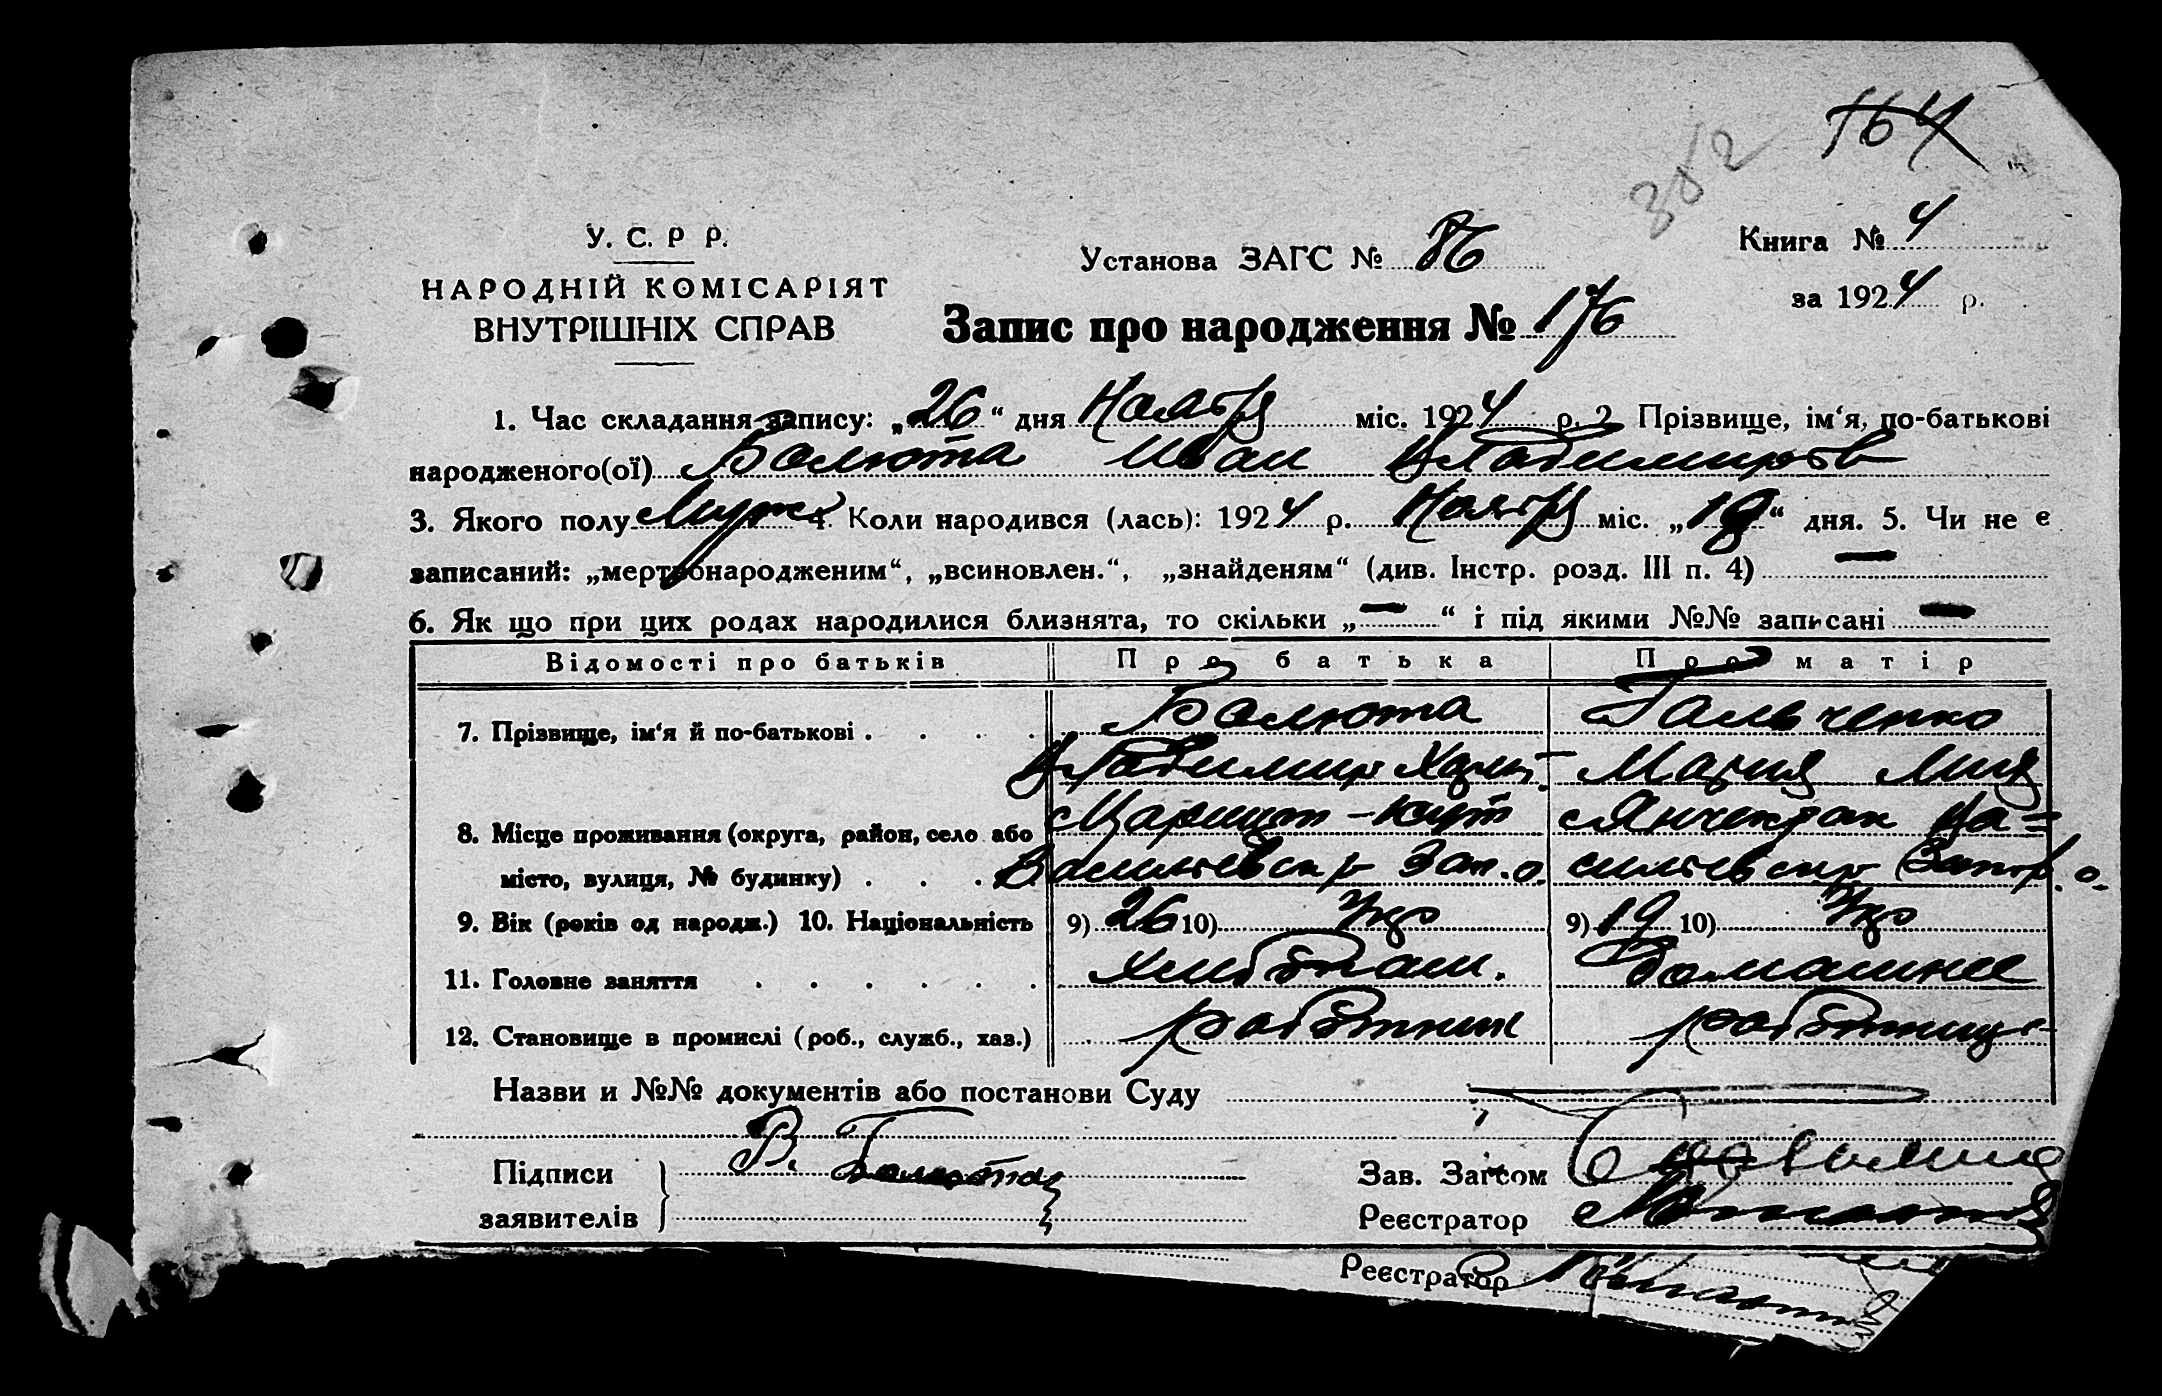 164
352
У. С. Р Р.
НАРОДНІЙ КОМІСАРІЯТ
ВНУТРІШНІХ СПРАВ
Установа ЗАГС № 86
Книга № 4
за 1924 р.
Запис про народження № 176
1. Час складання запису: „26“ дня Ноября міс. 1924 р. 2. Прізвище, ім‘я, по-батькові
народженого(ої) Балюта Иван Владимиров
3. Якого полу Муж 4. Коли народився (лась): 1924 р. Ноября міс. „19“ дня. 5. Чи не є
записаний: „мертвонародженим“, „всиновлен.“, „знайденям“ (див. Інстр. розд. III п. 4) —
6. Як що при цих родах народилися близнята, то скільки „—“ і під якими №№ записані —
Відомості про батьків Про батька Про матір
7. Прізвище, ім‘я й по-батькові . . . . Балюта Гальченко
Владимир Мария
8. Місце проживання (округа, район, село або Царицын-Кут Янчекрак Ва=
місто, вулиця, № будинку) . . . Васильевск р Зап. о. сильевск р Запор. о.
9. Вік (років од народж.) 10. Національність 9) 26 10) Укр 9) 19 10) Укр
11. Головне заняття . . . . . . Хлебопаш. Домашнее
12. Становище в промислі (роб., служб., хаз.) работник работница
Назви и №№ документів або постанови Суду
Підписи В. Балюта Зав. Загсом
заявителів Реєстратор
Реєстратор